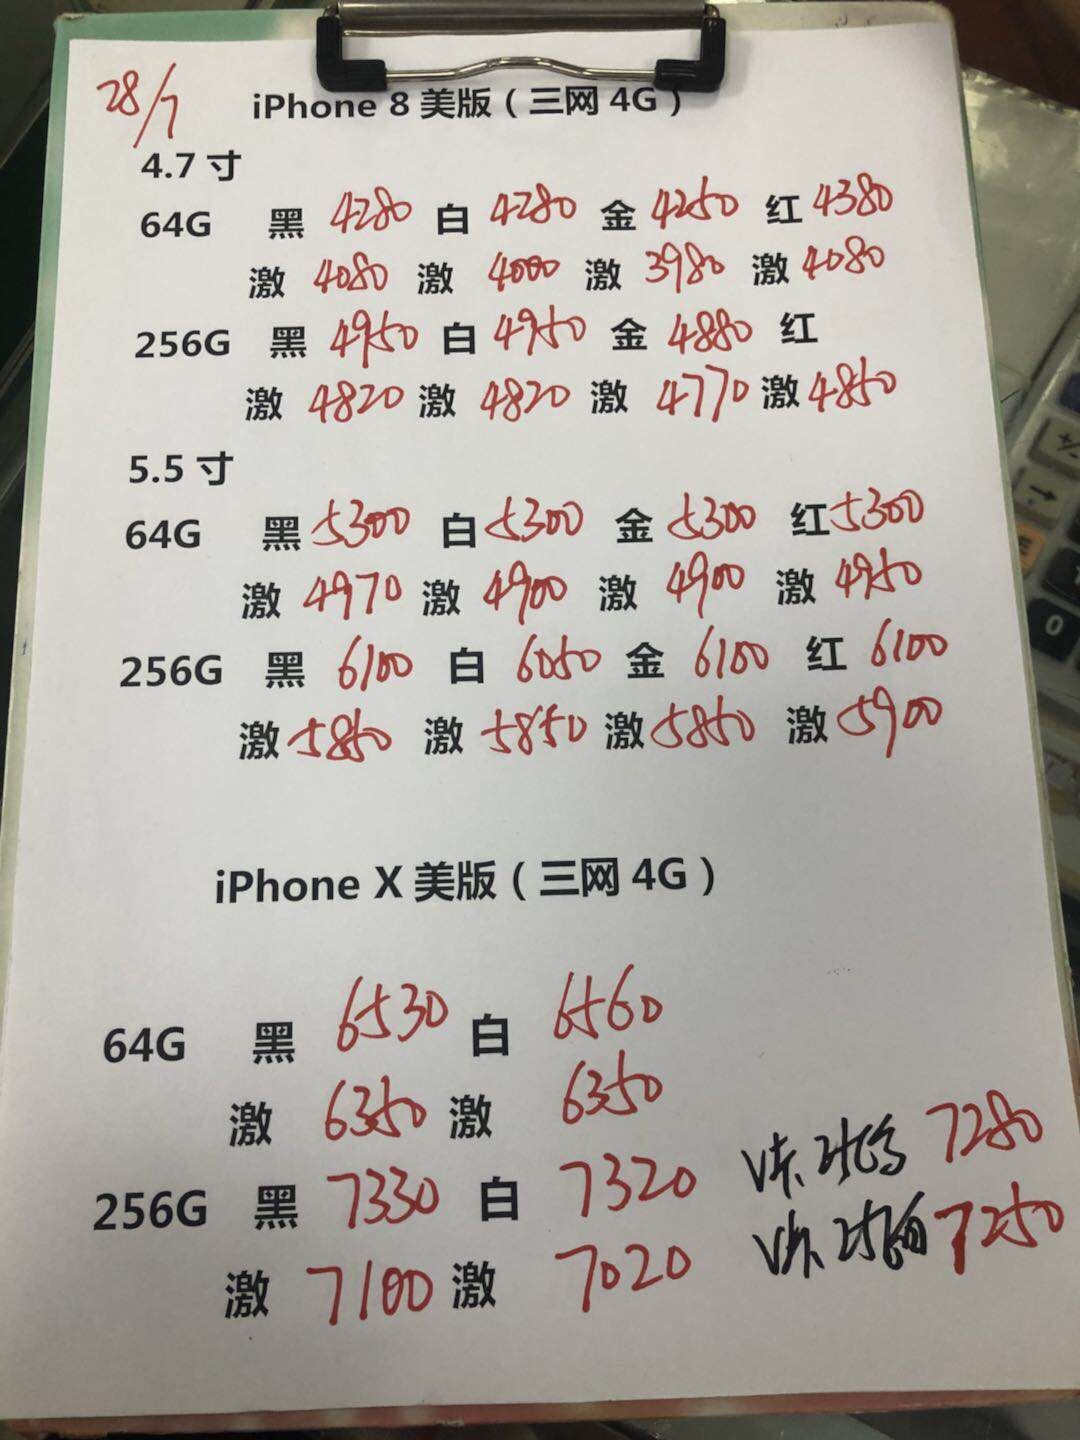 28/7
iPhone 8 美版（三网 4G）
4.7 寸
64G 黑 4280 白 4280 金 4250 红 4380
激 4080 激 4000 激 3980 激 4080
256G 黑 4950 白 4950 金 4880 红
激 4820 激 4820 激 4770 激 4850
5.5 寸
64G 黑 5300 白 5300 金 5300 红 5300
激 4970 激 4900 激 4900 激 4950
256G 黑 6100 白 6050 金 6100 红 6100
激 5850 激 5850 激 5850 激 5900
iPhone X 美版（三网 4G）
64G 黑 6530 白 6560
激 6350 激 6350
256G 黑 7330 白 7320 V卡 7280
激 7100 激 7020 V卡 256白 7250
+/-
→
0